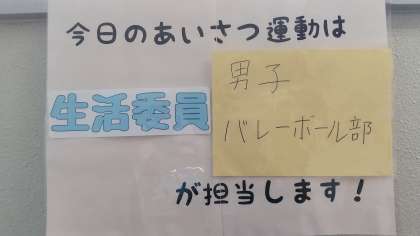 今日のあいさつ運動は
生活委員
男子
バレーボール部
が担当します!